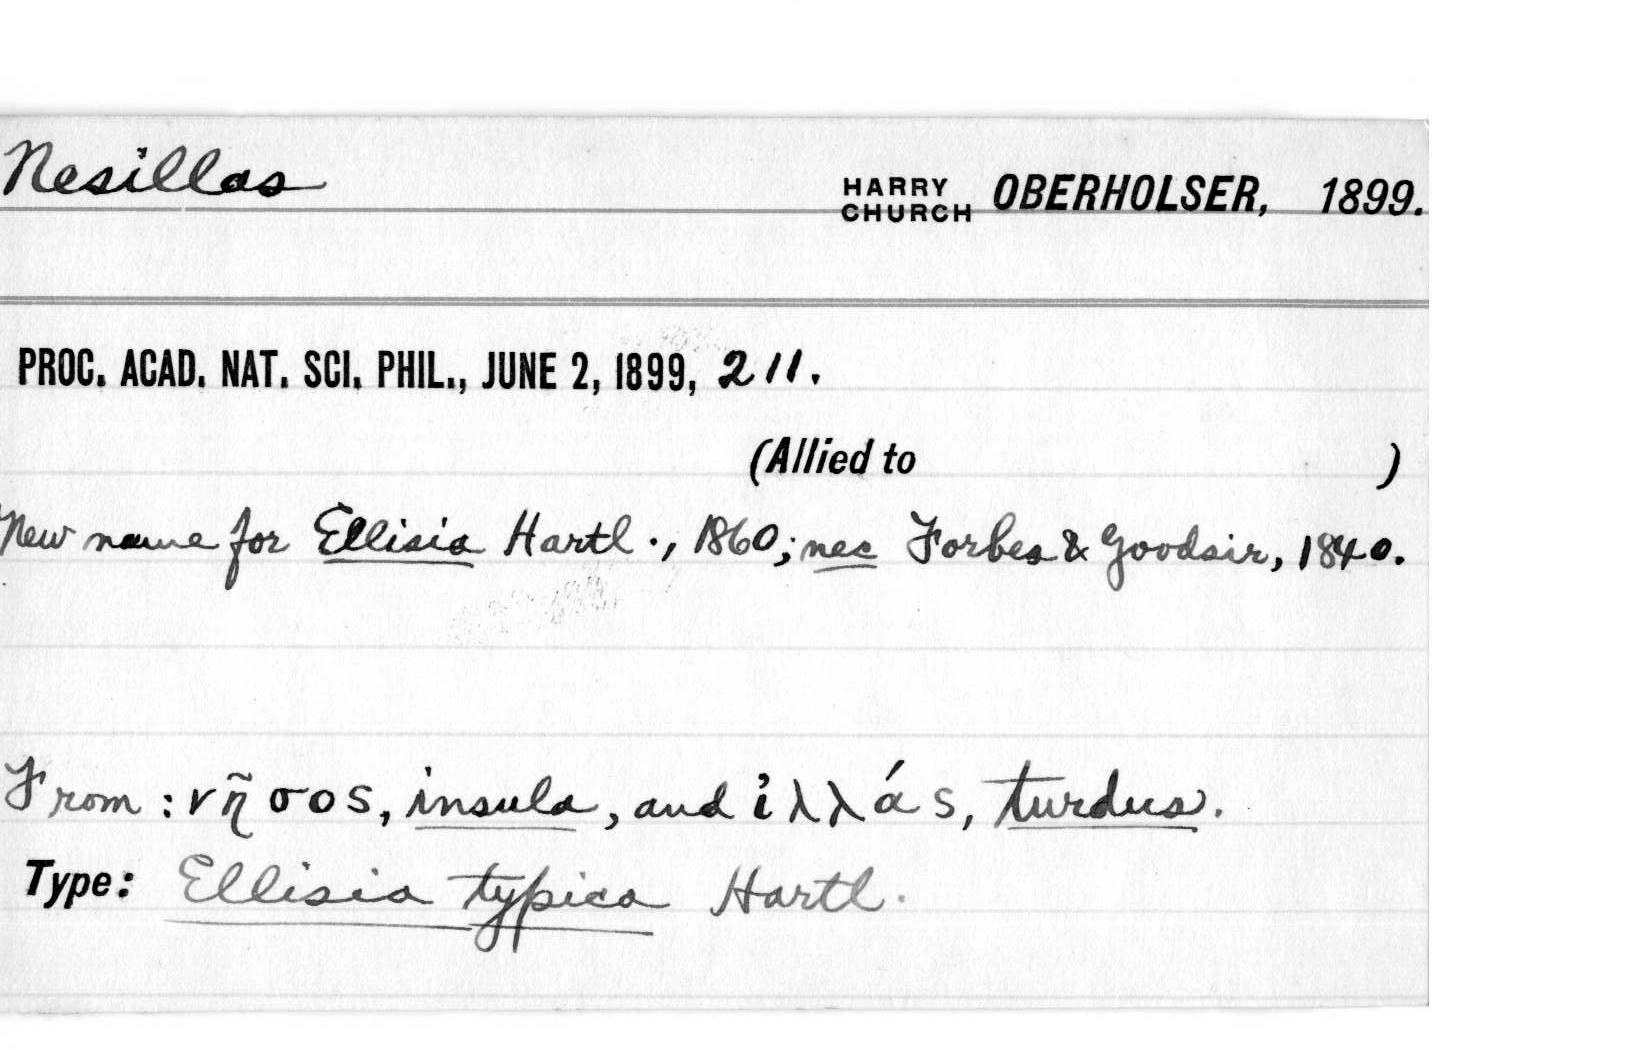 Nesillas HARRY CHURCH OBERHOLSER, 1899.
PROC. ACAD. NAT. SCI. PHIL., JUNE 2, 1899, 211.
(Allied to )
New name for Ellisia Hartl., 1860; nec Forbes & Goodsir, 1840.
From: νῆσος, insula, and ἰλλάς, turdus.
Type: Ellisia typica Hartl.